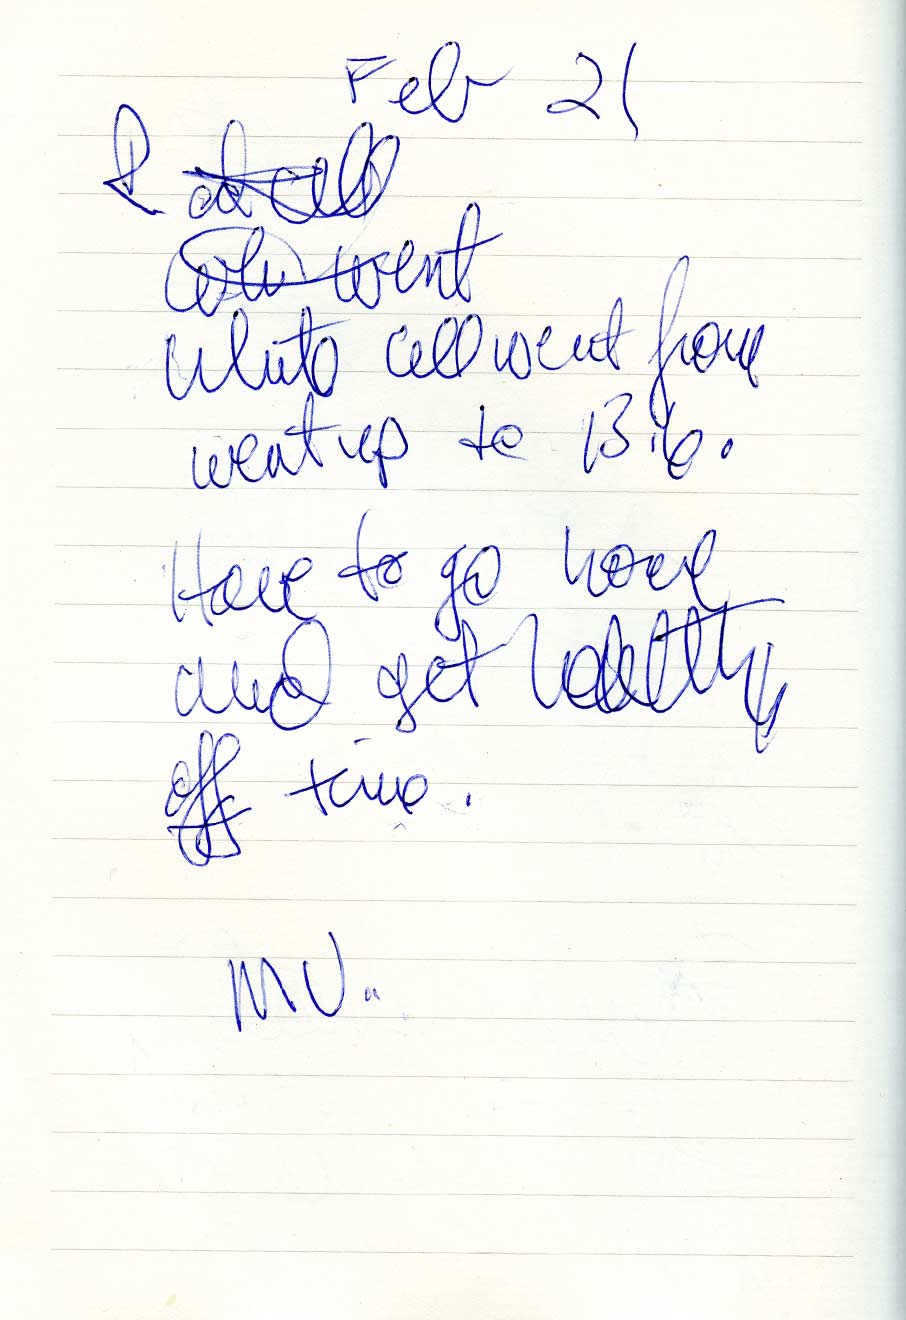 Feb 21
I
went
White cell went from
went up to 13.6.
Have to go home
and get healthy
off time.
MV.